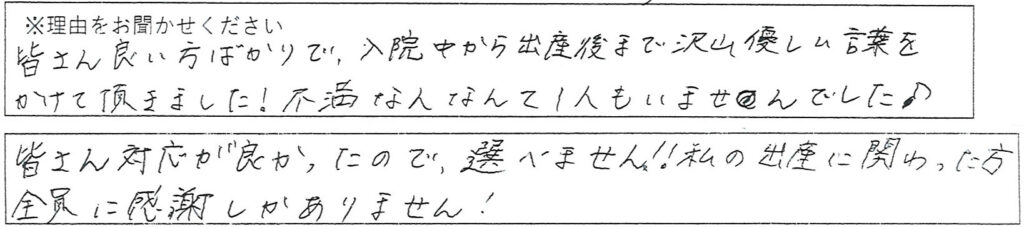 ※理由をお聞かせください
皆さん良い方ばかりで、入院中から出産後まで沢山優しい言葉を
かけて頂きました!不満な人なんて1人もいませんでした♪
皆さん対応が良かったので、選べません!!私の出産に関わった方
全員に感謝しかありません!